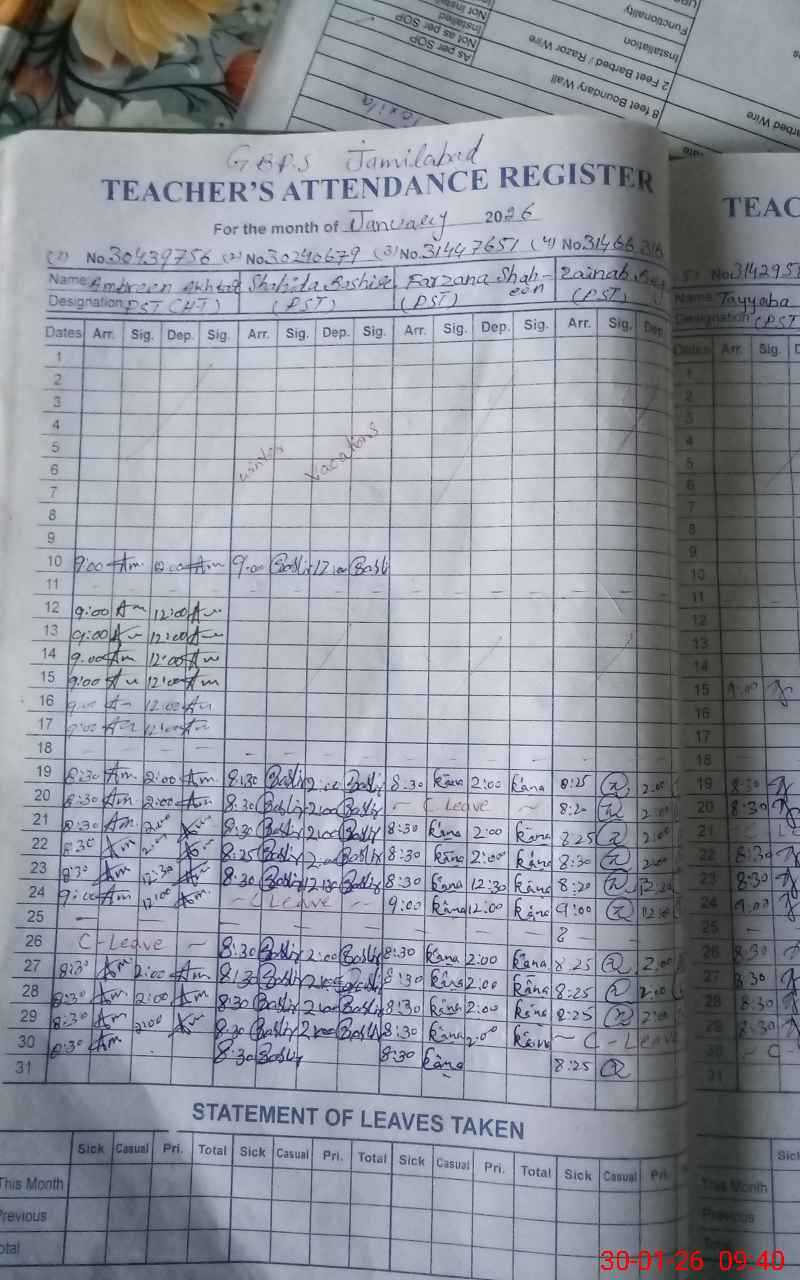 8 feet Boundary Wall
2 Feet Barbed / Razor Wire
As per SOP
Not as per SOP
Installation
Installed
Functionality
G.B.P.S Jamilabad
TEACHER'S ATTENDANCE REGISTER
For the month of January 2026
(1) No. 30439756 (2) No. 30240679 (3) No. 31447651 (4) No. 31466
Name Ambreen Akhtar Shahida Bashir Farzana Shaheen Zainab
Designation PST (HT) (PST) (PST) (PST)
Dates Arr. Sig. Dep. Sig. Arr. Sig. Dep. Sig. Arr. Sig. Dep. Sig. Arr. Sig. Dep.
1
2
3
4
5
winter vacations
6
7
8
9
10 9:00 Am 12:00 Am 9:00 Bashir 12:00 Bashir
11 – – – –
12 9:00 Am 12:00 Am
13 9:00 Am 12:00 Am
14 9:00 Am 12:00 Am
15 9:00 Am 12:00 Am
16 9:00 Am 12:00 Am
17 9:00 Am 12:00 Am
18 – – – –
19 8:30 Am 2:00 Am 8:30 Bashir 2:00 Bashir 8:30 kana 2:00 kana 8:25 2:00
20 8:30 Am 2:00 Am 8:30 Bashir 2:00 Bashir – C Leave – 8:20 2:00
21 8:30 Am 2:00 Am 8:30 Bashir 2:00 Bashir 8:30 kana 2:00 kana 8:25 2:00
22 8:30 Am 2:00 Am 8:25 Bashir 2:00 Bashir 8:30 kana 2:00 kana 8:30 2:00
23 8:30 Am 12:30 Am 8:30 Bashir 12:30 Bashir 8:30 kana 12:30 kana 8:20 12:30
24 9:00 Am 12:00 Am – C Leave – 9:00 kana 12:00 kana 9:00 12:00
25 – – – –
26 C-Leave – 8:30 Bashir 2:00 Bashir 8:30 kana 2:00 kana 8:25 2:00
27 8:30 Am 2:00 Am 8:30 Bashir 2:00 Bashir 8:30 kana 2:00 kana 8:25 2:00
28 8:30 Am 2:00 Am 8:30 Bashir 2:00 Bashir 8:30 kana 2:00 kana 8:25 2:00
29 8:30 Am 2:00 Am 8:30 Bashir 2:00 Bashir 8:30 kana 2:00 kana – C-Leave
30 8:30 Am 8:30 Bashir 8:30 kana 8:25
31
STATEMENT OF LEAVES TAKEN
Sick Casual Pri. Total Sick Casual Pri. Total Sick Casual Pri. Total Sick Casual Pri.
This Month
Previous
Total
TEAC
(5) No. 314295
Name Tayyaba
Designation (PST
Dates Arr. Sig. D
1
2
3
4
5
6
7
8
9
10
11
12
13
14
15 9:00
16
17
18
19 8:30
20 8:30
21 C Le
22 8:30
23 8:30
24 9:00
25 –
26 8:30
27 8:30
28 8:30
29 8:30
30 – C-
31
Sic
This Month
Previous
Total
30-01-26 09:40